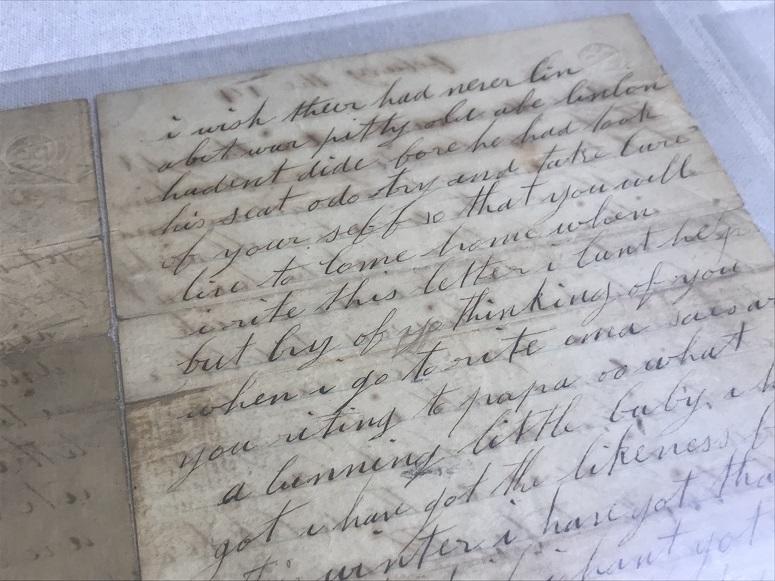 i wish theur had never bin
abut war pitty old abe lincon
hadent dide bore he had took
his seat o do try and take care
of your self so that you will
live to come home when
i rite this letter i cant help
but cry thinking of you
when i go to rite ama sais a
you riting to papa oo what
a cunning little baby i h
got i have got the likeness
winter i have got tha
i hant got